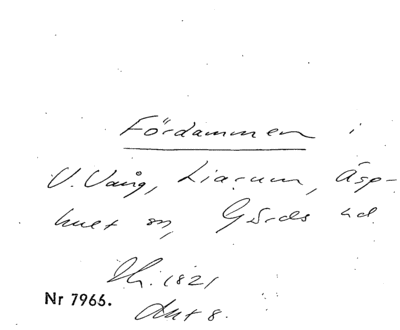 Fördammen i
V. Vång, Liarum, Äsp-
huet sn, Gärds hd
1821
Nr 7966.
Akt 8.